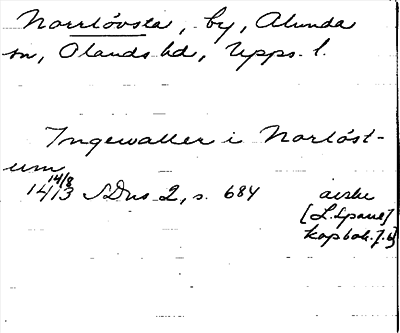 Norrlövsta, by, Alunda
sn, Olands hd, Upps. l.
Ingewaller i Norlöst-
um
14/8
1413 SDns 2, s. 684 avskr
[L. Sparre]
kopbok. f. 6]